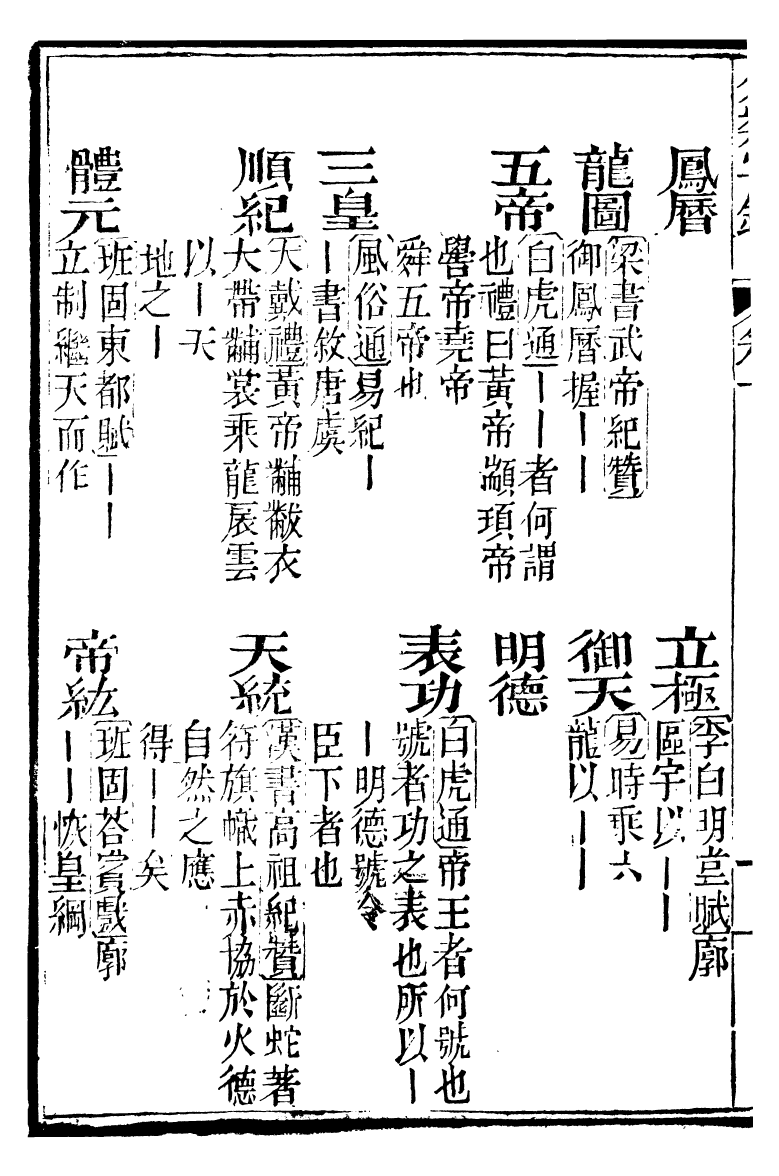 鳳曆
龍圖
梁書武帝紀贊
御鳳曆握丨丨
五帝
白虎通丨丨者何謂
也禮曰黃帝顓頊帝
嚳帝堯帝
舜五帝也
三皇
風俗通易紀丨
丨書敘唐虞
順紀
大戴禮黃帝黼黻衣
大帶黼裳乘龍扆雲
以丨天
地之丨
體元
班固東都賦丨丨
立制繼天而作
立極
李白明堂賦廓
區宇以丨丨
御天
易時乘六
龍以丨丨
明德
表功
白虎通帝王者何號也
號者功之表也所以丨
丨明德號令
臣下者也
天統
漢書高祖紀贊斷蛇著
符旗幟上赤協於火德
自然之應
得丨丨矣
帝紘
班固荅賓戲廓
丨丨恢皇綱